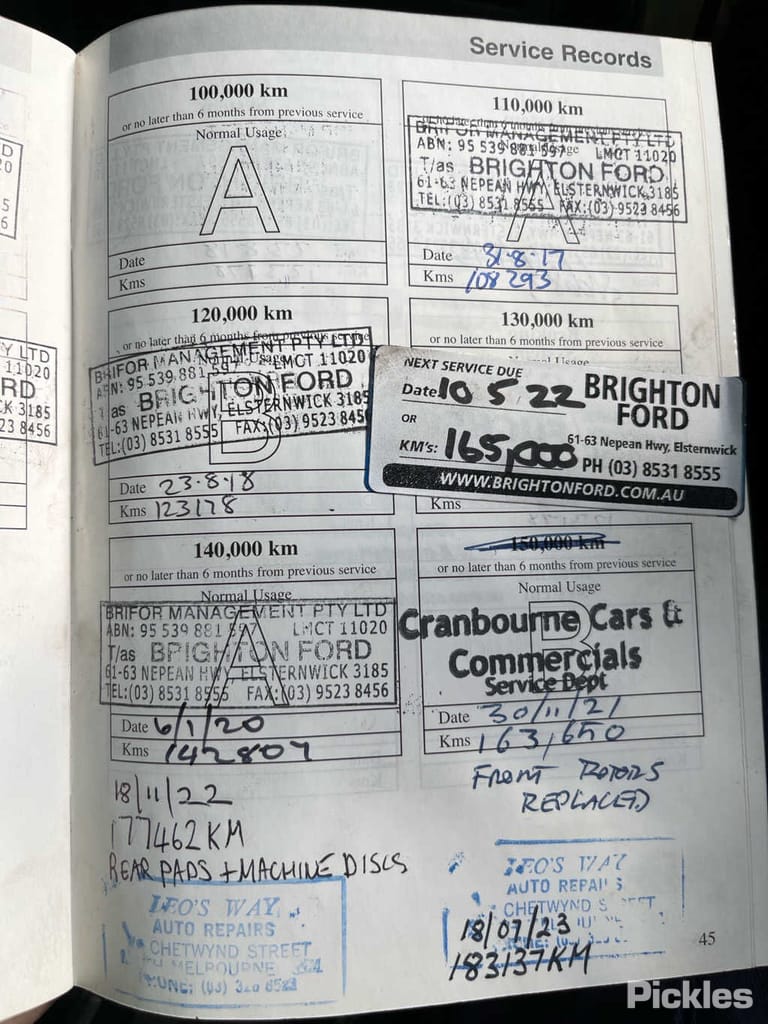 Service Records
100,000 km
or no later than 6 months from previous service
Normal Usage
A
Date
Kms
110,000 km
BRIFOR MANAGEMENT PTY LTD
ABN: 95 539 881 597 LMCT 11020
T/as BRIGHTON FORD
61-63 NEPEAN HWY, ELSTERNWICK 3185
TEL:(03) 8531 8555 FAX:(03) 9523 8456
A
Date 31·8·17
Kms 108293
120,000 km
or no later than 6 months from previous service
BRIFOR MANAGEMENT PTY LTD
ABN: 95 539 881 597 LMCT 11020
T/as BRIGHTON FORD
61-63 NEPEAN HWY, ELSTERNWICK 3185
TEL:(03) 8531 8555 FAX:(03) 9523 8456
B
Date 23·8·18
Kms 123178
130,000 km
or no later than 6 months from previous service
NEXT SERVICE DUE
Date: 10 5 22
OR
KM's: 165,000
BRIGHTON
FORD
61-63 Nepean Hwy, Elsternwick
PH (03) 8531 8555
WWW.BRIGHTONFORD.COM.AU
Kms
140,000 km
or no later than 6 months from previous service
Normal Usage
BRIFOR MANAGEMENT PTY LTD
ABN: 95 539 881 597 LMCT 11020
T/as BRIGHTON FORD
61-63 NEPEAN HWY, ELSTERNWICK 3185
TEL:(03) 8531 8555 FAX:(03) 9523 8456
A
Date 6/1/20
Kms 142807
150,000 km
or no later than 6 months from previous service
Normal Usage
B
Cranbourne Cars &
Commercials
Service Dept
Date 30/11/21
Kms 163,650
Front Rotors
REPLACED
18/11/22
177462KM
REAR PADS + MACHINE DISCS
LEO'S WAY
AUTO REPAIRS
CHETWYND STREET
MELBOURNE
LEO'S WAY
AUTO REPAIRS
CHETWYND STREET
18/07/23
183137KM
45
Pickles